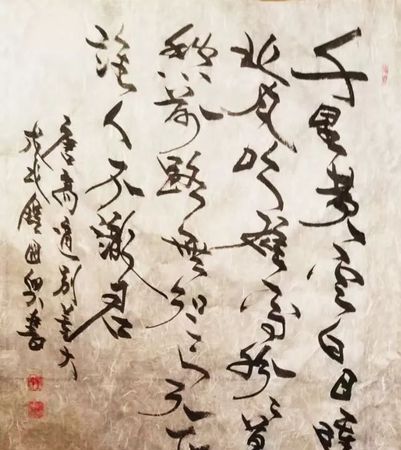 千里黄雲白日曛
北風吹雁雪紛〻莫
愁前路無知己天下
誰人不識君
唐高適别董大
戊戌 書